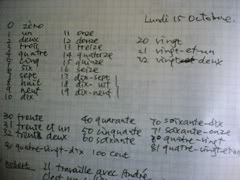 Lundi 15 Octobre.
0 zéro
1 un 11 onze 20 vingt
2 deux 12 douze 21 vingt-et-un
3 trois 13 treize 22 vingt deux
4 quatre 14 quatorze
5 cinq 15 quinze
6 six 16 seize
7 sept 17 dix-sept
8 huit 18 dix-huit
9 neuf 19 dix-neuf
10 dix
30 trente 40 quarante 70 soixante-dix
31 trente et un 50 cinquante 71 soixante-onze
32 trente-deux 60 soixante 80 quatre-vingt
90 quatre-vingt-dix 100 cent 81 quatre-vingt-un
Robert Il travaille avec André.